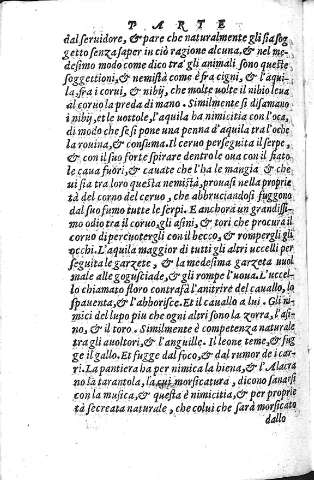 PARTE
dal seruidore, & pare che naturalmente gli sia sog
getto senza saper in ciò ragione alcuna, & nel me-
desimo modo come dico tra' gli animali sono queste
soggettioni, & nemistà come è fra cigni, & l'aqui-
la, fra i corui, & nibij, che molte uolte il nibio leua
al coruo la preda di mano. Similmente si disamano
i nibij, et le uottole, l'aquila ha nimicitia con l'oca,
di modo che se si pone una penna d'aquila tra l'oche
la rouina, & consuma. Il ceruo perseguita il serpe,
& con il suo forte spirare dentro le oua con il fiato
le caua fuori, & cauate che l'ha le mangia & che
ui sia tra loro questa nemistà, prouasi nella proprie
tà del corno del ceruo, che abbruciandosi fuggono
dal suo fumo tutte le serpi. E anchora un grandissi-
mo odio tra il coruo, gli asini, & tori che procura il
coruo di percuotergli con il becco, & rompergli gli
occhi. L'aquila maggior di tutti gli altri uccelli per
seguita le garzete, & la medesima garzeta uuol
male alle goguschiade, & gli rompe l'uoua. L'uccel-
lo chiamato floro contrafà l'anitrire del cauallo, lo
spauenta, & l'abborisce. Et il cauallo a lui. Gli ni-
mici del lupo piu che ogni altri sono la zorra, l'asi-
no, & il toro. Similmente è competenza naturale
tra gli auoltori, & l'anguille. Il leone teme, & fug
ge il gallo. Et fugge dal foco, & dal rumor de i car-
ri. La pantiera ha per nimica la hiena, & l'Alacra
no la tarantola, la cui morsicatura, dicono sanarsi
con la musica, & questa è nimicitia, & per proprie
tà secreata naturale, che colui che sarà morsicato
dallo